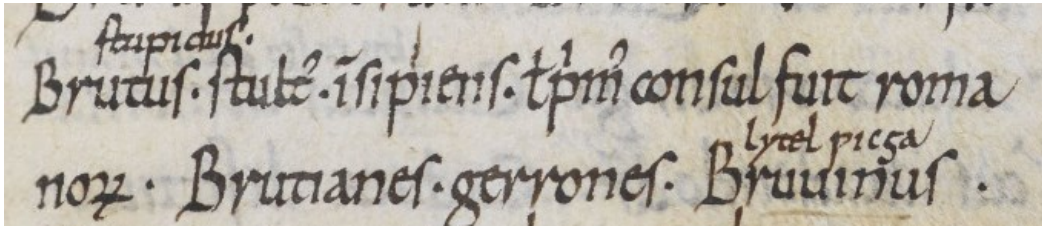 stupidus.
Brutus. stultꝰ. īsipiens. ł pͥmꝰ consul fuit roma
lytel picga
noꝝ. Brutianes. gerrones. Bruuinus.